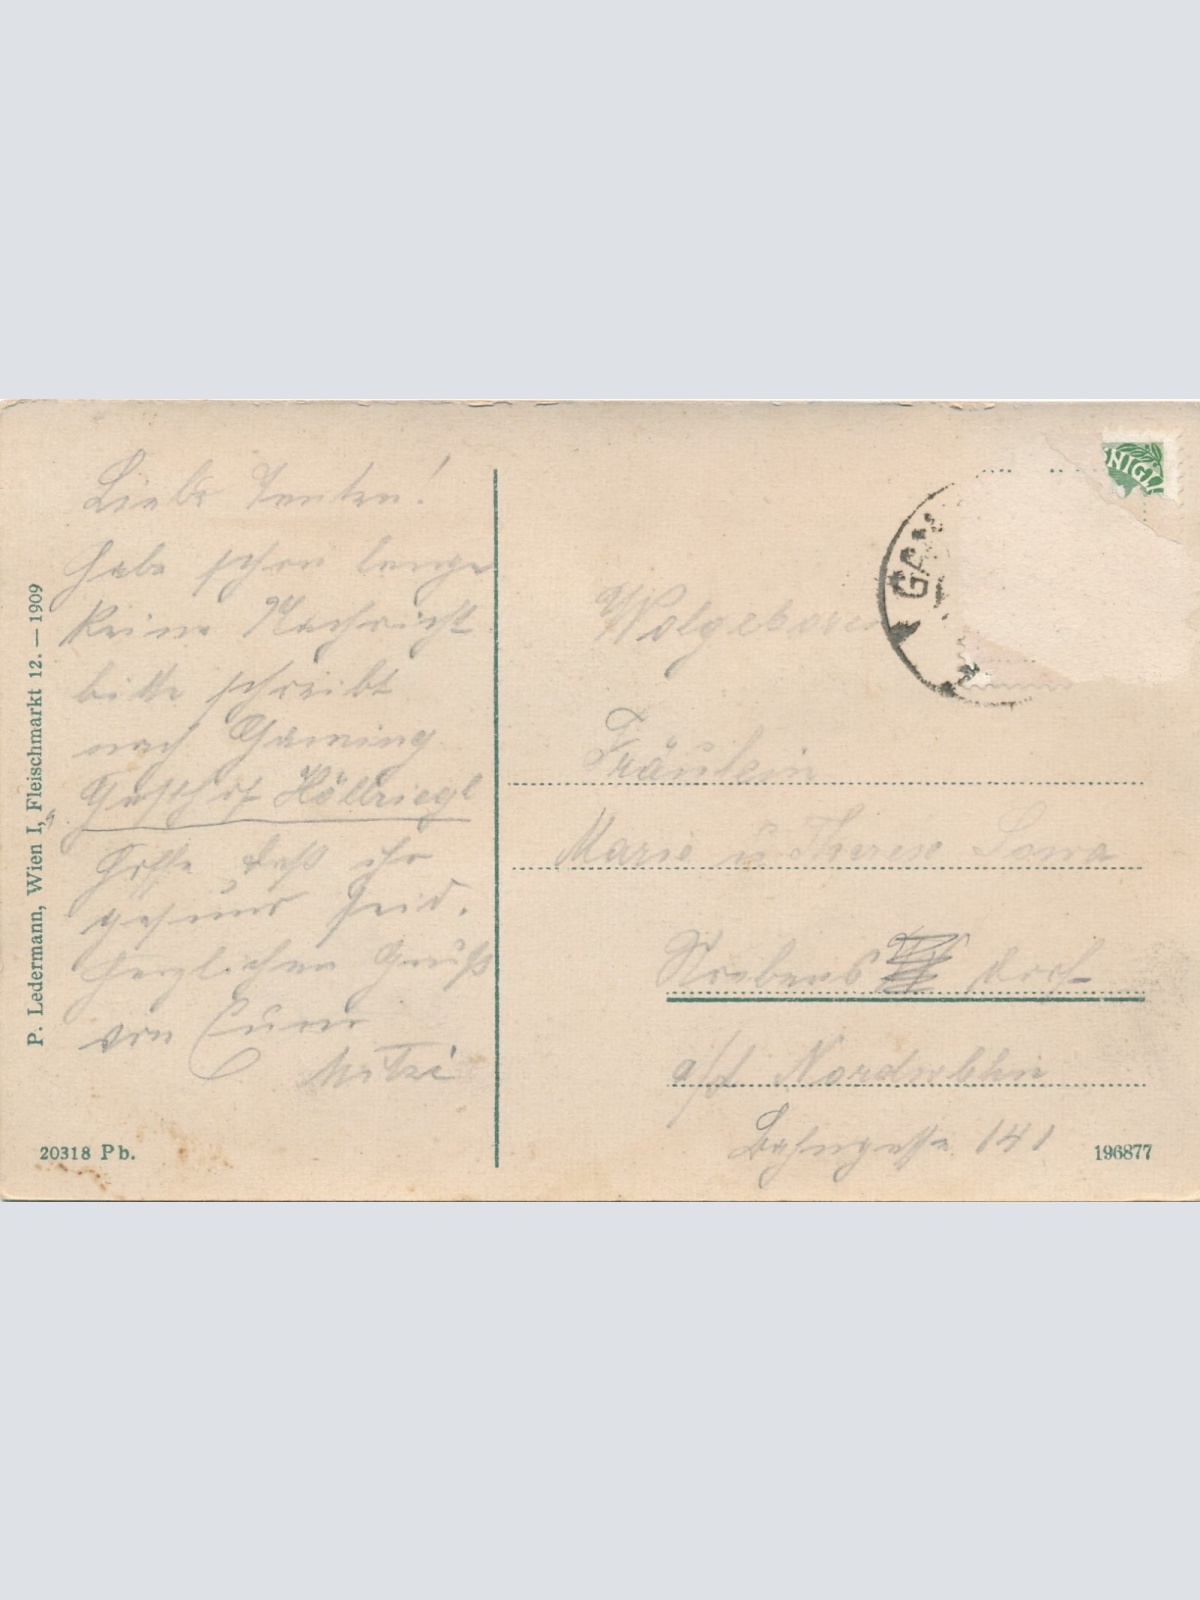 Liebe Tanten!
Habe schon lange
keine Nachricht
bitte schreibt
nach Gaming
Gasthof Höllriegl
Hoffe daß ihr
gesund seid.
Herzlichen Gruß
von Eurer
Mitzi
P. Ledermann, Wien I, Fleischmarkt 12. — 1909
20318 Pb.
NIGL
GAM
Wolgeboren
Fräulein
Marie u. Therese Sowa
dorf
a/d Nordwbhn
Bahngasse 141
196877